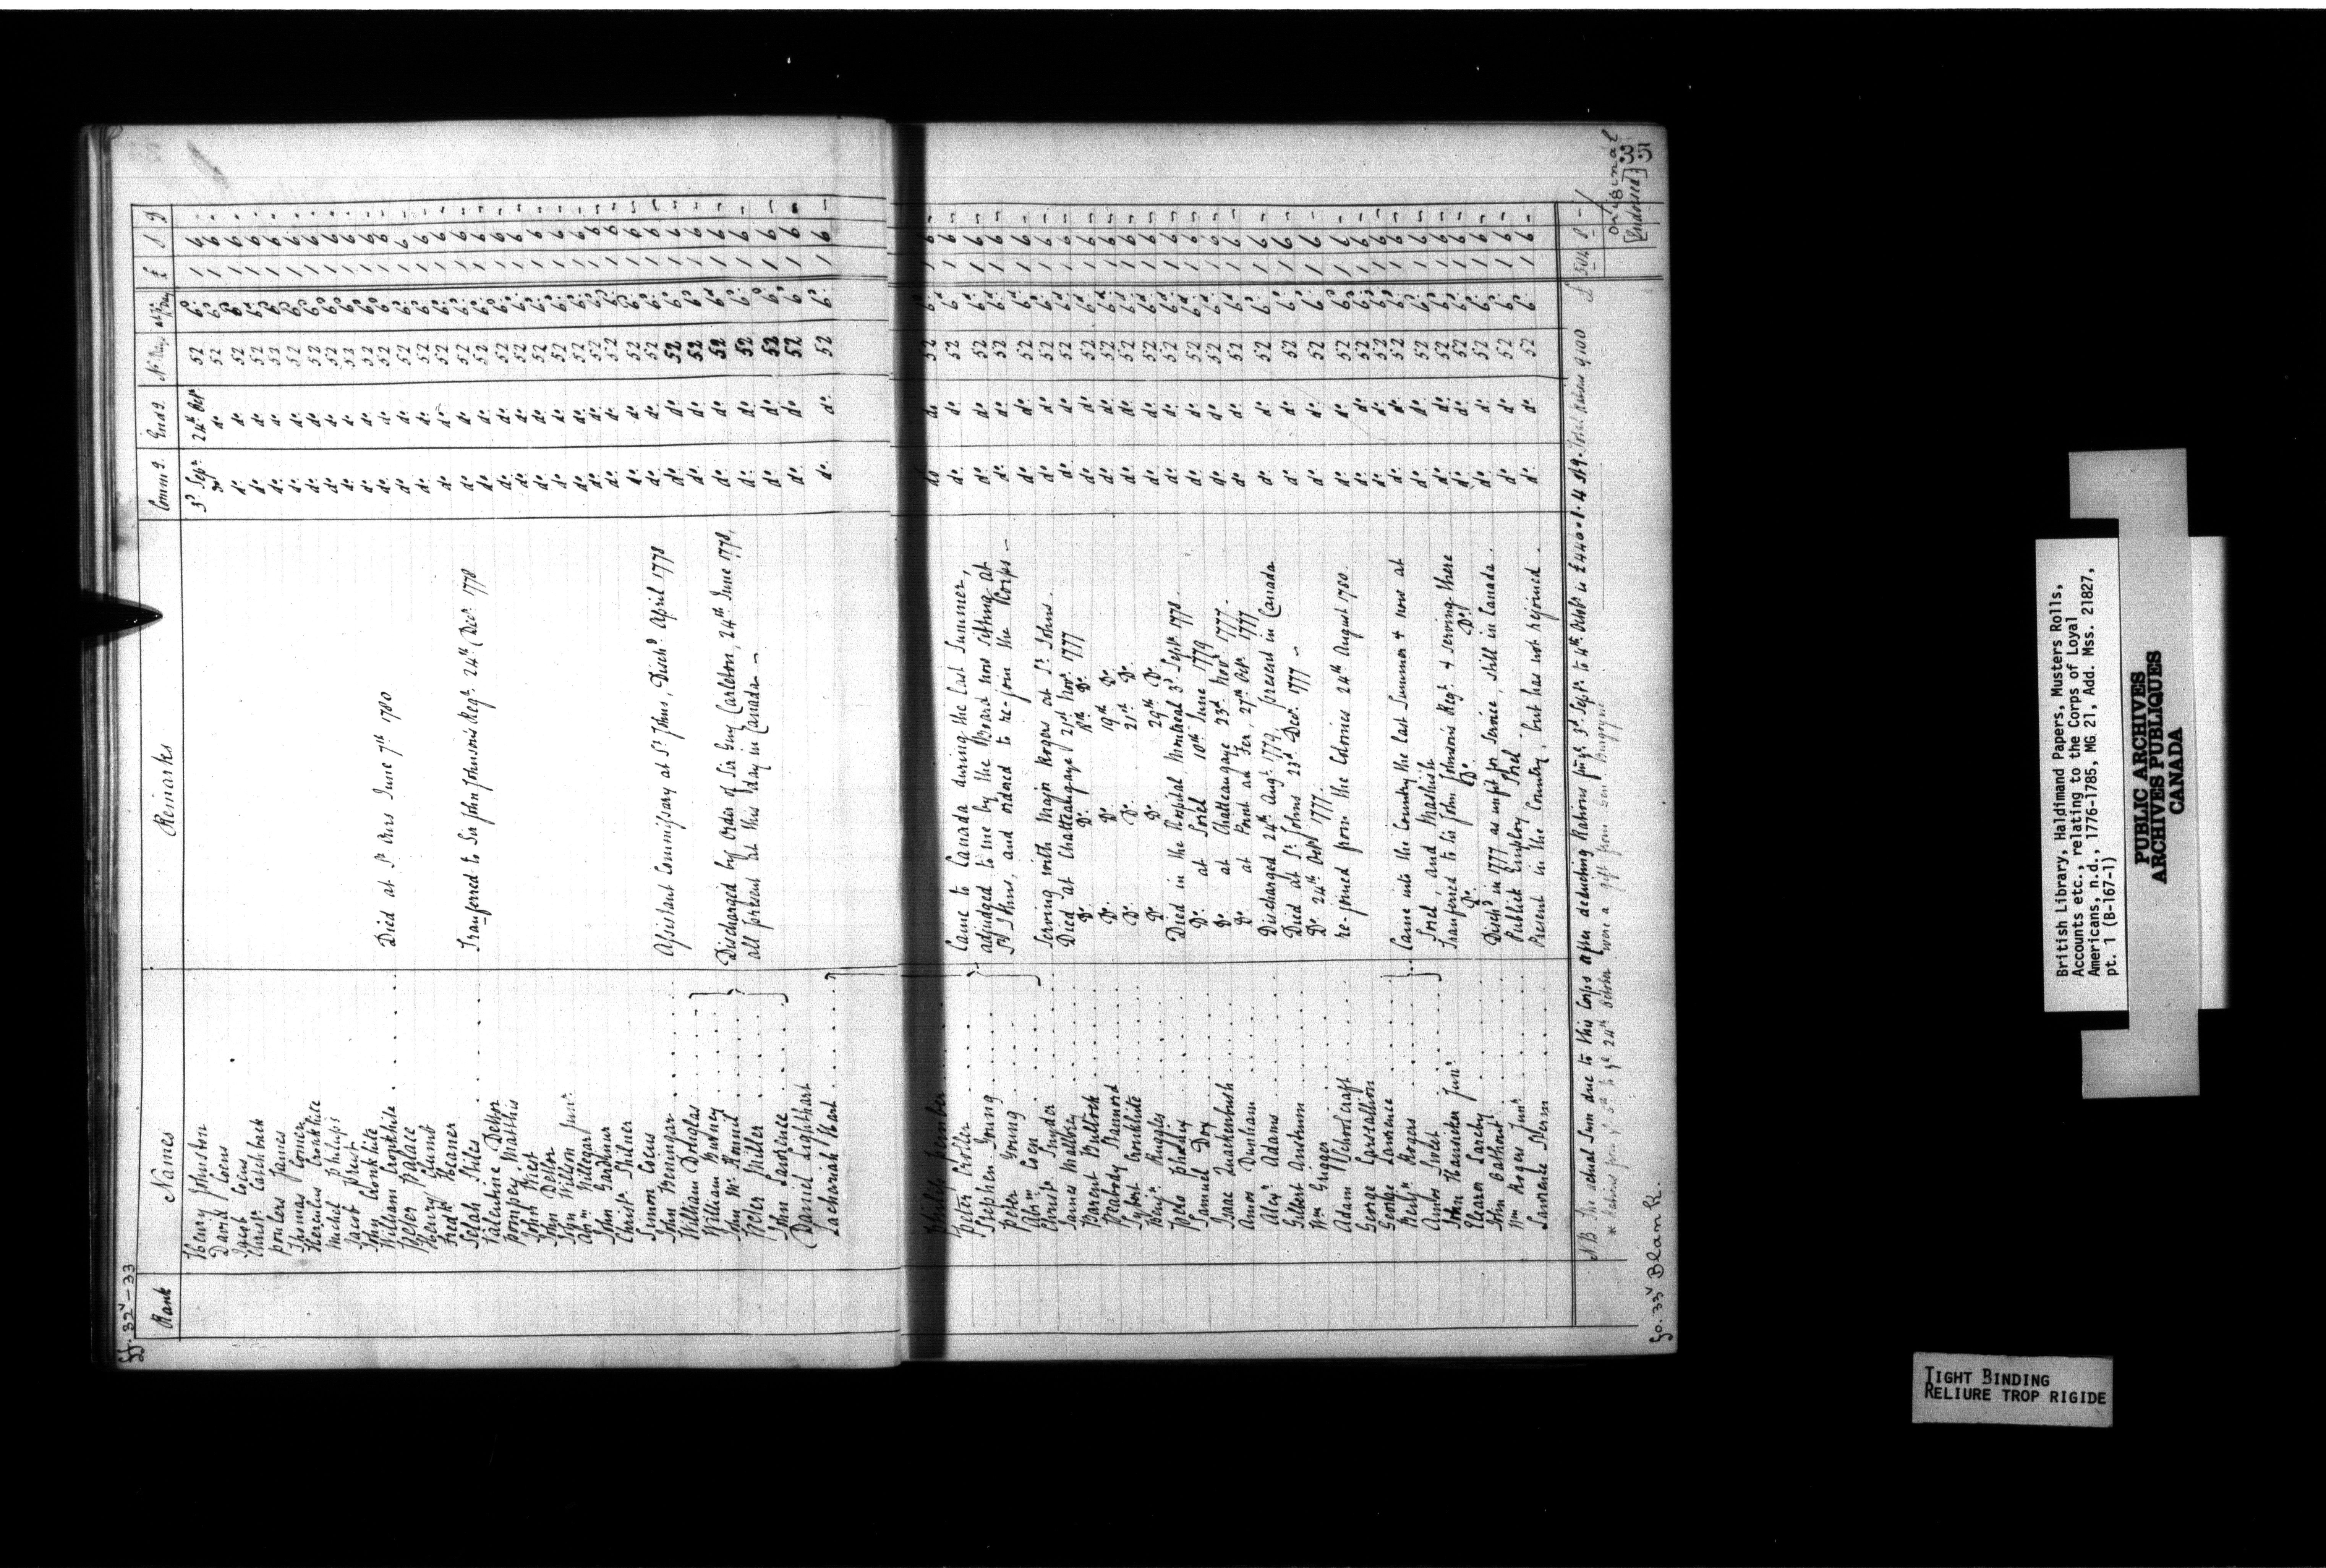 ff. 32v – 33
Rank Names Remarks Commg. Endg. No. Days at 6d pr Day £ S D
Henry Johnston 3d Sepr. 24th Octr. 52 6d. 1 6 -
David Cocns do. do. 52 6d. 1 6 -
Cocns do. do. 52 6d. 1 6 -
Christr. Catchback do. do. 52 6d. 1 6 -
James do. do. 52 6d. 1 6 -
Thomas Comer do. do. 52 6d. 1 6 -
Hercules Cronkhite do. do. 52 6d. 1 6 -
Michel Philips do. do. 52 6d. 1 6 -
Jacob Prent do. do. 52 6d. 1 6 -
John Cronkhite do. do. 52 6d. 1 6 -
William Cronkhite . . . . Died at St. Ours June 7th 1780 do. do. 52 6d. 1 6 -
Peter Palace do. do. 52 6d. 1 6 -
Henry Plumb do. do. 52 6d. 1 6 -
Fredk. Keaner do. do. 52 6d. 1 6 -
Selah Stiles . . . . Transferred to Sir John Johnson's Regt. 24th Decr. 1778 do. do. 52 6d. 1 6 -
Valentine Detlor do. do. 52 6d. 1 6 -
Pompey Mathis do. do. 52 6d. 1 6 -
John West do. do. 52 6d. 1 6 -
John Detlor do. do. 52 6d. 1 6 -
John Wilson Junr. do. do. 52 6d. 1 6 -
Abrm. Hillegar do. do. 52 6d. 1 6 -
John Gardnur do. do. 52 6d. 1 6 -
Christr. Shilner do. do. 52 6d. 1 6 -
Simon Cocns do. do. 52 6d. 1 6 -
John Boningar . . . . Assistant Commissary at St. Johns, Dischd. April 1778 do. do. 52 6d. 1 6 -
William Douglas do. do. 52 6d. 1 6 -
William Budney . . . . Discharged by Order of Sir Guy Carleton, 24th June 1778, do. do. 52 6d. 1 6 -
John Mc. Connil . . . . all present at this day in Canada – do. do. 52 6d. 1 6 -
Peter Miller . . . . do. do. 52 6d. 1 6 -
John Lawrence . . . . do. do. 52 6d. 1 6 -
Daniel Lighthart do. do. 52 6d. 1 6 -
Zachariah Hart . . . . do. do. 52 6d. 1 6 -
Philip Pember . . . . do do 52 6d. 1 6 -
Peter Croller . . . . Came to Canada during the last Summer, do. do. 52 6d. 1 6 -
Stephen Young . . . . adjudged to me by the Board now sitting at do. do. 52 6d. 1 6 -
Peter Young . . . . St Johns, and ordered to re-join the Corps – do. do. 52 6d. 1 6 -
Abrm Coen . . . . do. do. 52 6d. 1 6 -
Christr. Snyder . . . . Serving with Major Rogers at St. Johns. do. do. 52 6d. 1 6 -
James Mallery . . . . Died at Chatteaugaye 21st Novr. 1777 do. do. 52 6d. 1 6 -
Barent Bullock . . . . Do. Do. 18th Do. do. do. 52 6d. 1 6 -
Peabody Stannord . . . . Do. Do. 19th Do. do. do. 52 6d. 1 6 -
Sybert Cronkhite . . . . Do. Do. 21st Do. do. do. 52 6d. 1 6 -
Benjn. Ruggles . . . . Do. Do. 29th Do. do. do. 52 6d. 1 6 -
Died in the Hospital Montreal 3d. Sepr. 1778. do. do. 52 6d. 1 6 -
Samuel Doy . . . . Do. at Sorel 10th June 1779 do. do. 52 6d. 1 6 -
Isaac Quackenbush . . . . Do. at Chatteaugaye 23d Novr. 1777. do. do. 52 6d. 1 6 -
Amos Dunham . . . . Do. at Point au Fer, 27th Octr. 1777 do. do. 52 6d. 1 6 -
Alexr. Adams . . . . Discharged 24th Augt. 1779, present in Canada do. do. 52 6d. 1 6 -
Gilbert Anstrum . . . . Died at St. Johns 23d Decr. 1777 – do. do. 52 6d. 1 6 -
Wm Grigger . . . . Do. 24th Octr. 1777. do. do. 52 6d. 1 6 -
Adam Schoolcraft . . . . re-joined from the Colonies 24th August 1780. do. do. 52 6d. 1 6 -
George Casstallion do. do. 52 6d. 1 6 -
George Lawrence do. do. 52 6d. 1 6 -
Benjn. Rogers . . . . Came into the Country the last Summer & now at do. do. 52 6d. 1 6 -
Amos Sweet . . . . Sorel, and Mashish do. do. 52 6d. 1 6 -
John Hansicker Junr. Transferred to Sir John Johnsons Regt. & serving there do. do. 52 6d. 1 6 -
Eleazer Lareby . . . . Do. Do. Do. do. do. 52 6d. 1 6 -
John Bathout . . . . Dischd in 1777 as unfit for Service, still in Canada. do. do. 52 6d. 1 6 -
Wm Rogers Junr . . . . Publick Employ Sorel do. do. 52 6d. 1 6 -
Lawrence Storm . . . . Present in the Country, but has not rejoined. do. do. 52 6d. 1 6 -
NB. The actual Sum due to this Corps after deducting Rations from 3d. Sept. to 4th Octr. is £440.. 1. 4 Stg. Total Rations 9100 £ 504 8 –
* Rations from ye. 5th to ye. 24th October were a gift from Genl Burgoyne.
original
[Endorsed] 33
51
fo. 33v Blank.
British Library, Haldimand Papers, Musters Rolls,
Accounts etc., relating to the Corps of Loyal
Americans, n.d., 1776-1785, MG 21, Add. Mss. 21827,
pt. 1 (B-167-1)
PUBLIC ARCHIVES
ARCHIVES PUBLIQUES
CANADA
TIGHT BINDING
RELIURE TROP RIGIDE